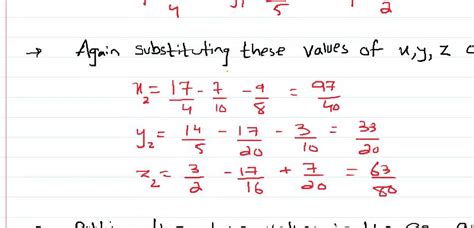 4 5 2
→ Again substituting these values of x, y, z
x₂ = 17/4 - 7/10 - 9/8 = 97/40
y₂ = 14/5 - 17/20 - 3/10 = 33/20
z₂ = 3/2 - 17/16 + 7/20 = 63/80